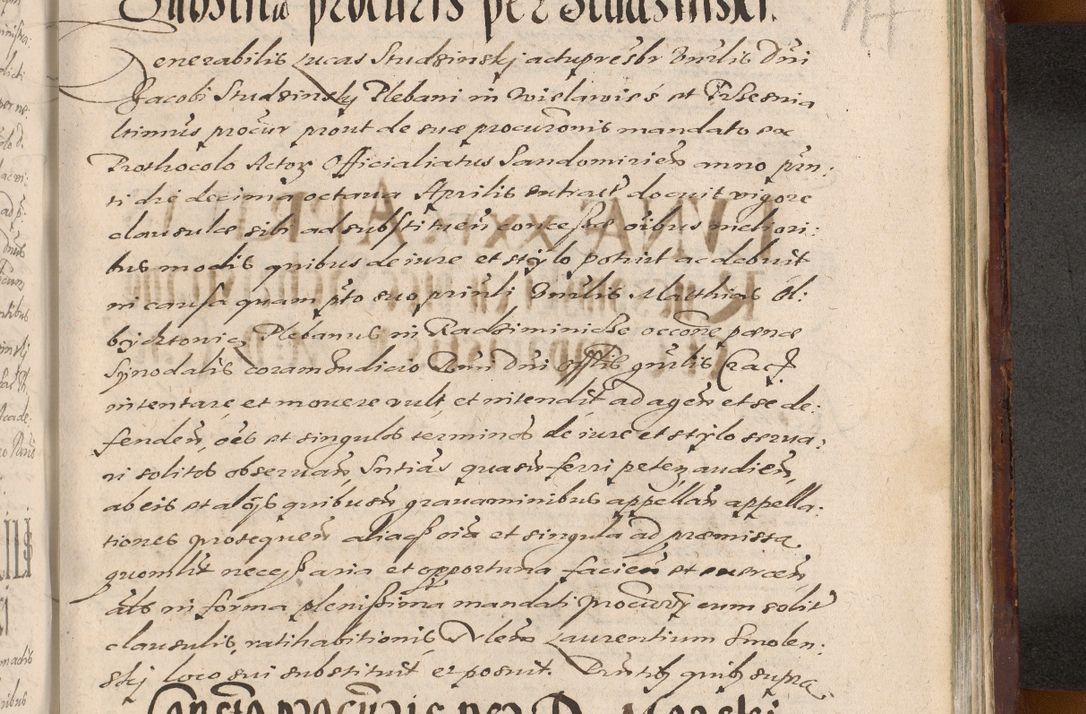 Substitu procuris per Studzinski.
Venerabilis Lucas Studzinskj actu presbr Vnrlis Dni
Jacobi Studzinskj Plebani in Wielawies et Przesnia
ltimus procur prout de suæ procuronis mandato ex
Prothocolo Actor Officialiatus Sandomirien anno præn
ti die decima octaua Aprilis extract docuit vigore
clausulæ sibi ad substituen concessæ oibus meliori:
bus modis quibus de iure et stylo potuit ac debuit
in causa quam pto suo prinli Vnrlis Matthias Ol:
Plebanus in Radziminicze occone pænæ
Synodalis coram Judicio Rmi Dni Offlis gnrlis Crac
intentare et mouere vult et intendit ad agen et se de:
fenden, oes et singulos terminos de iure et stylo serua:
ri solitos obseruan, Sntias quasuis ferri peten, audien,
ab eis et alijs quibusuis grauaminibus appellan appella:
tiones prosequen aliaq oia et singula ad præmissa
quomlit necessaria et opportuna facien et exercen,
als in forma plenissima mandati procurry cum solit
clausulis, ratihabitionis, Vlem Laurentium Smolen:
skj loco sui substituit et posuit. Pntib quib supra
Consto procuris per D. Morski